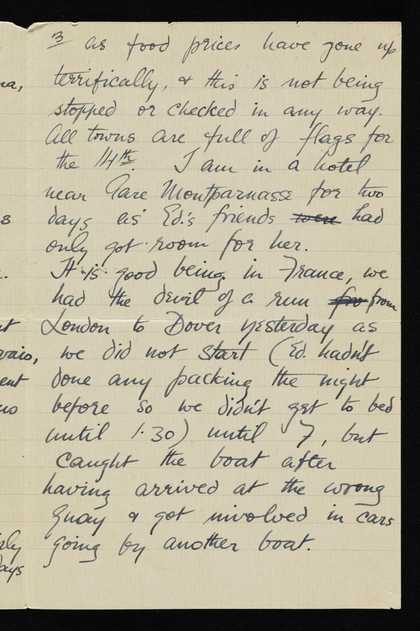 3 as food prices have gone up
terrifically, & this is not being
stopped or checked in any way.
All towns are full of flags for
the 14th. I am in a hotel
near Gare Montparnasse for two
days as Ed.'s friends were had
only got room for her.
It is good being in France, we
had the devil of a run fro from
London to Dover yesterday as
we did not start (Ed. hadn't
done any packing the night
before so we didn't get to bed
until 1.30) until 7, but
caught the boat after
having arrived at the wrong
Quay & got involved in cars
going by another boat.